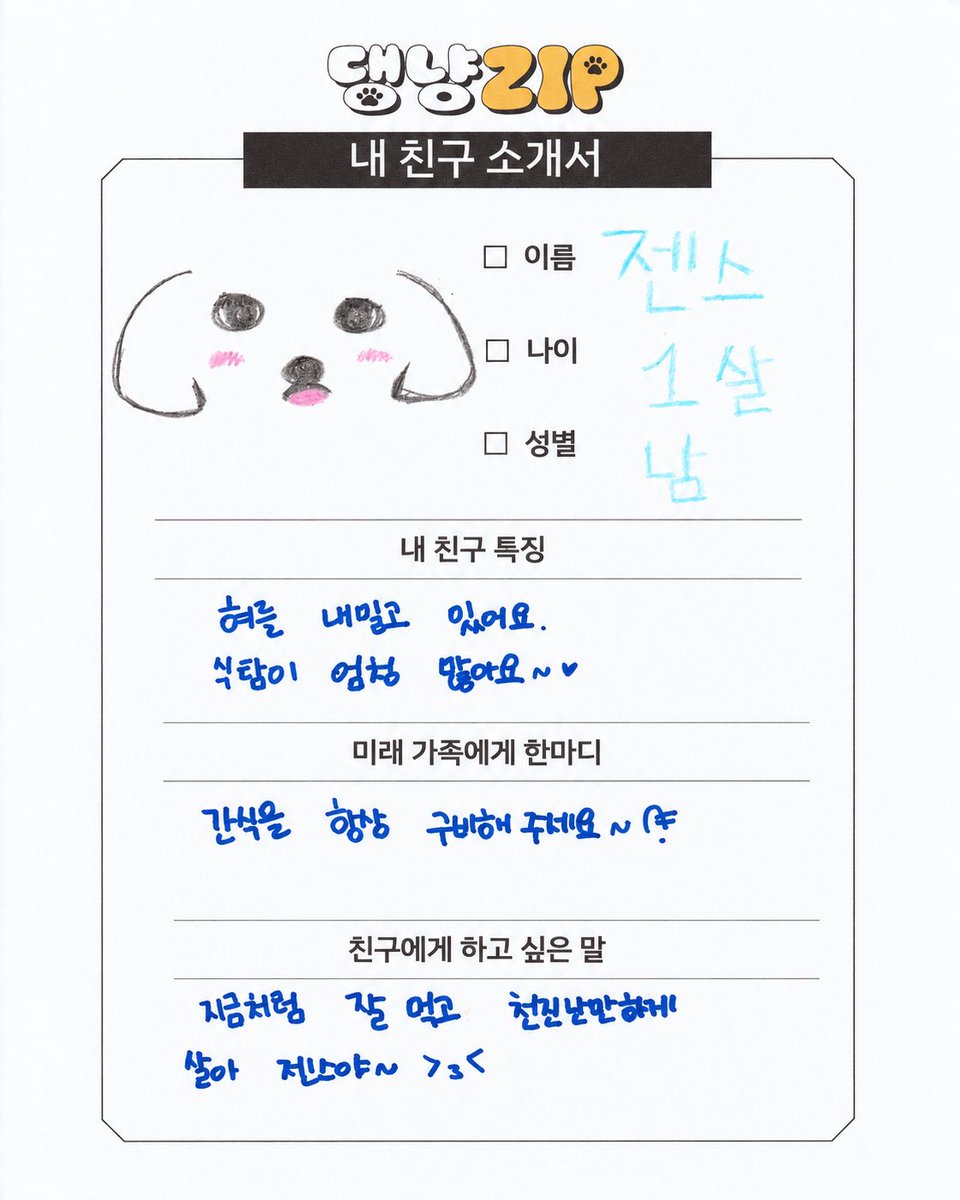 댕냥ZIP
내 친구 소개서
□ 이름 젠스
□ 나이 1살
□ 성별 남
내 친구 특징
혀를 내밀고 있어요.
식탐이 엄청 많아요~♥
미래 가족에게 한마디
간식을 항상 구비해 주세요~
친구에게 하고 싶은 말
지금처럼 잘 먹고 천진난만하게
살아 젠스야~ >3<